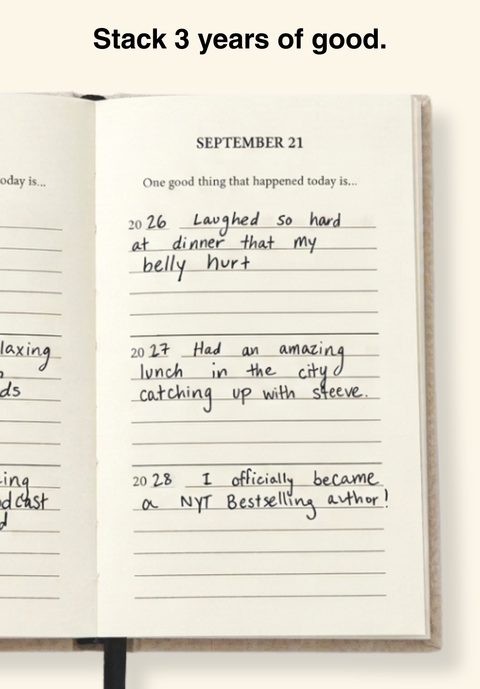 Stack 3 years of good.
oday is...
laxing
ds
ing
dcast
d
SEPTEMBER 21
One good thing that happened today is...
2026 Laughed so hard
at dinner that my
belly hurt
2027 Had an amazing
lunch in the city
catching up with steeve.
2028 I officially became
a NYT Bestselling author!